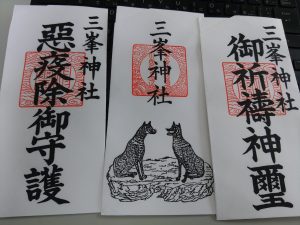 三峯神社
御祈禱神璽
三峯神社
三峯神社
惡疫除御守護